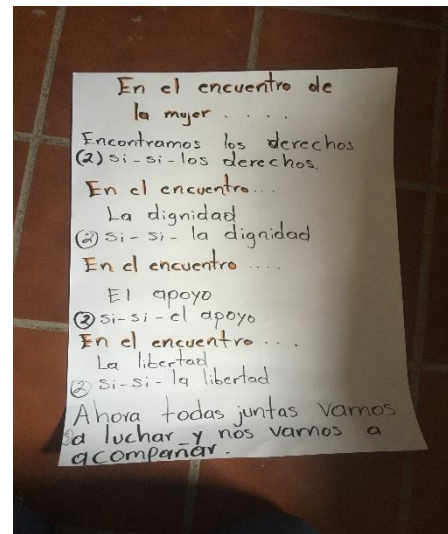 En el encuentro de
la mujer . . . .
Encontramos los derechos
(2) si - si - los derechos.
En el encuentro...
La dignidad
(2) si - si - la dignidad
En el encuentro ....
El apoyo
(2) si - si - el apoyo
En el encuentro ...
La libertad
(2) si - si - la libertad
Ahora todas juntas vamos
a luchar y nos vamos a
acompañar.